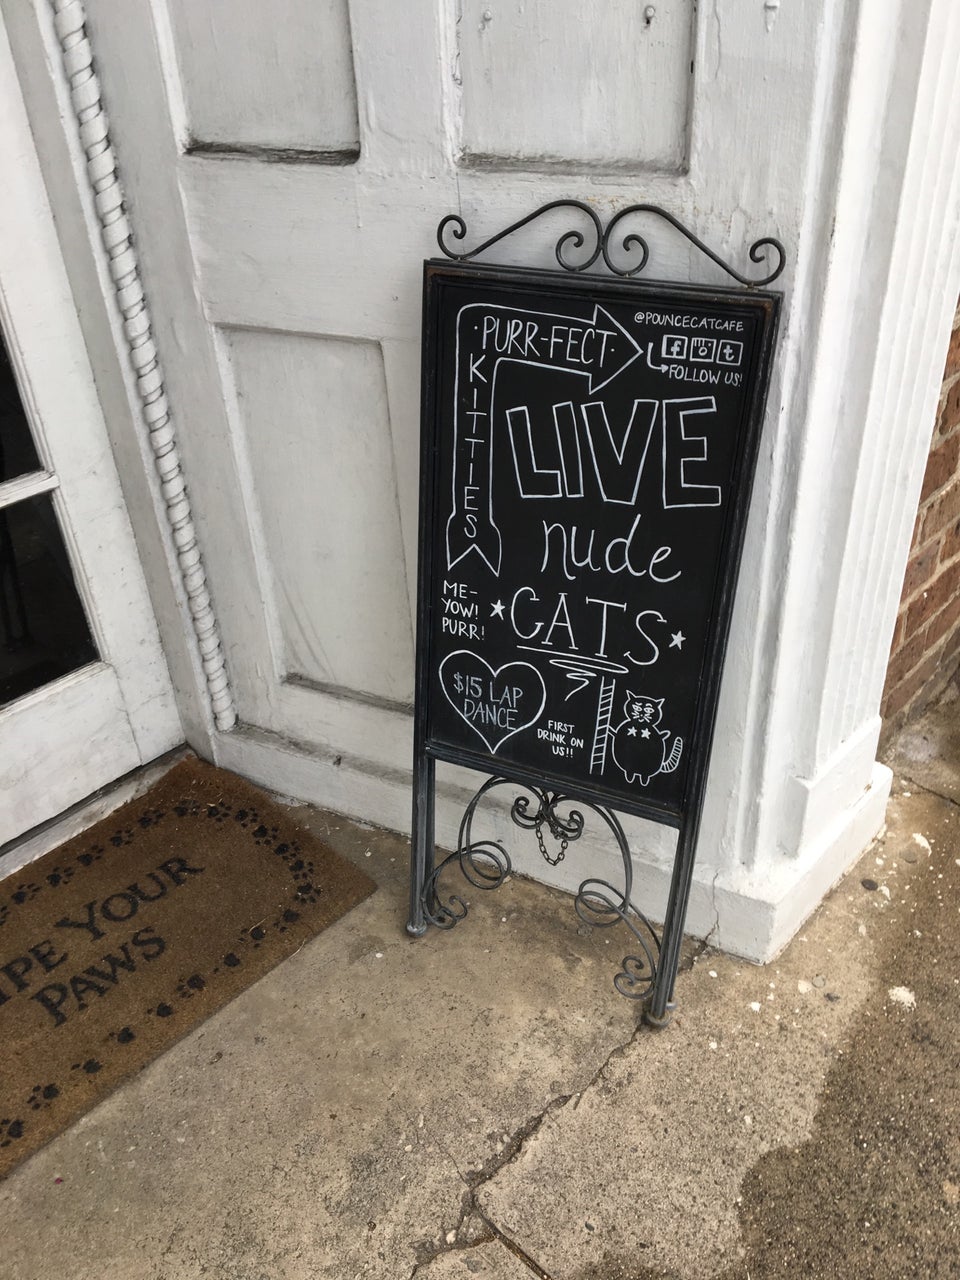 @POUNCECATCAFE
f t
FOLLOW US!
·PURR-FECT·
KITTIES
LIVE
nude
CATS
ME-
YOW!
PURR!
$15 LAP
DANCE
FIRST
DRINK ON
US!!
IPE YOUR
PAWS